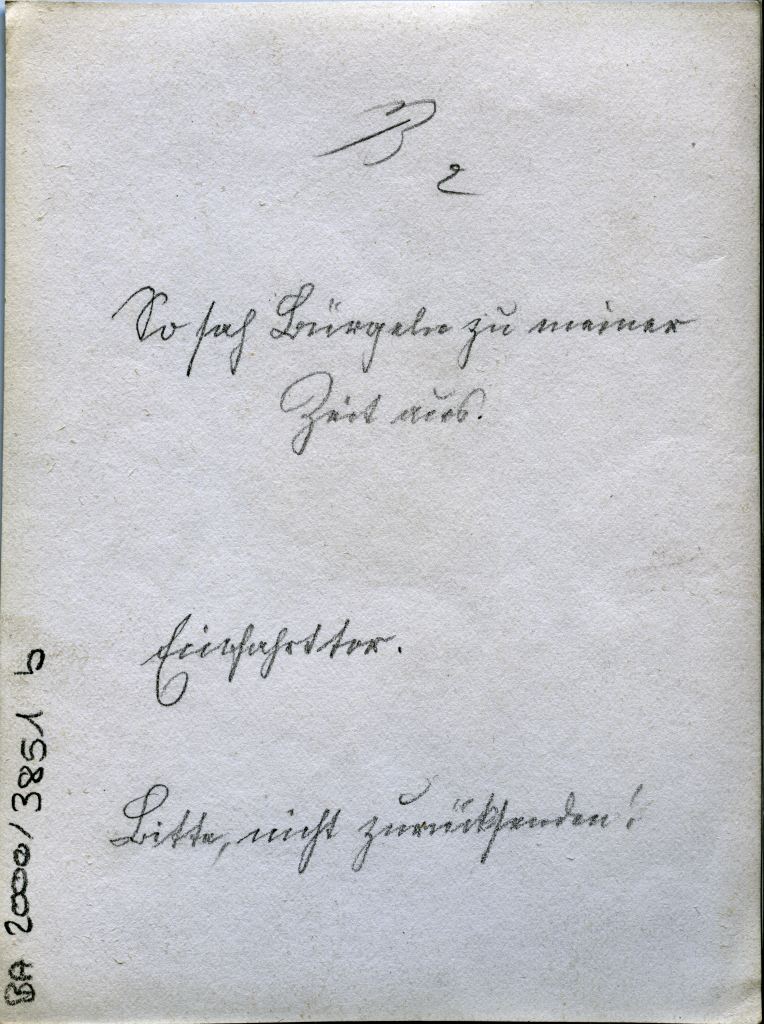 B
2
So sah Bürgeln zu meiner
Zeit aus.
Einfahrttor.
Bitte, nicht zurücksenden!
BA 2000/3851 b